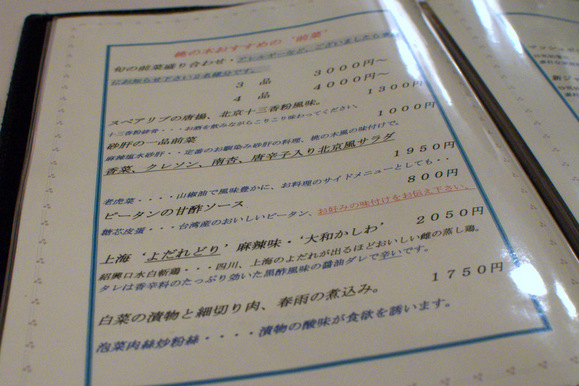 桃の木おすすめの‘前菜’
旬の前菜盛り合わせ・アレルギーなど、ございましたら
にお知らせ下さい
3 品 3000円～
4 品 4000円～
スペアリブの唐揚、北京十三香粉風味。 1300円
十三香粉排骨・・・お酒を飲みながらこりこり味わってください。
砂肝の一品前菜 1000円
麻辣塩水砂肝・・定番のお馴染み砂肝の料理、桃の木風の味付けで。
香菜、クレソン、南杏、唐辛子入り北京風サラダ 1950円
老虎菜・・・・・山椒油で風味豊かに、お料理のサイドメニューとしても・・
ピータンの甘酢ソース 800円
糖芯皮蛋・・・台湾産のおいしいピータン、お好みの味付けをお伝え下さい。
上海‘よだれどり’麻辣味・‘大和かしわ’ 2050円
紹興口水白斬鶏・・・四川、上海のよだれが出るほどおいしい雌の蒸し鶏。
タレは香辛料のたっぷり効いた黒酢風味の醤油ダレで辛いです。
白菜の漬物と細切り肉、春雨の煮込み。 1750円
泡菜肉絲炒粉絲・・・・漬物の酸味が食欲を誘います。